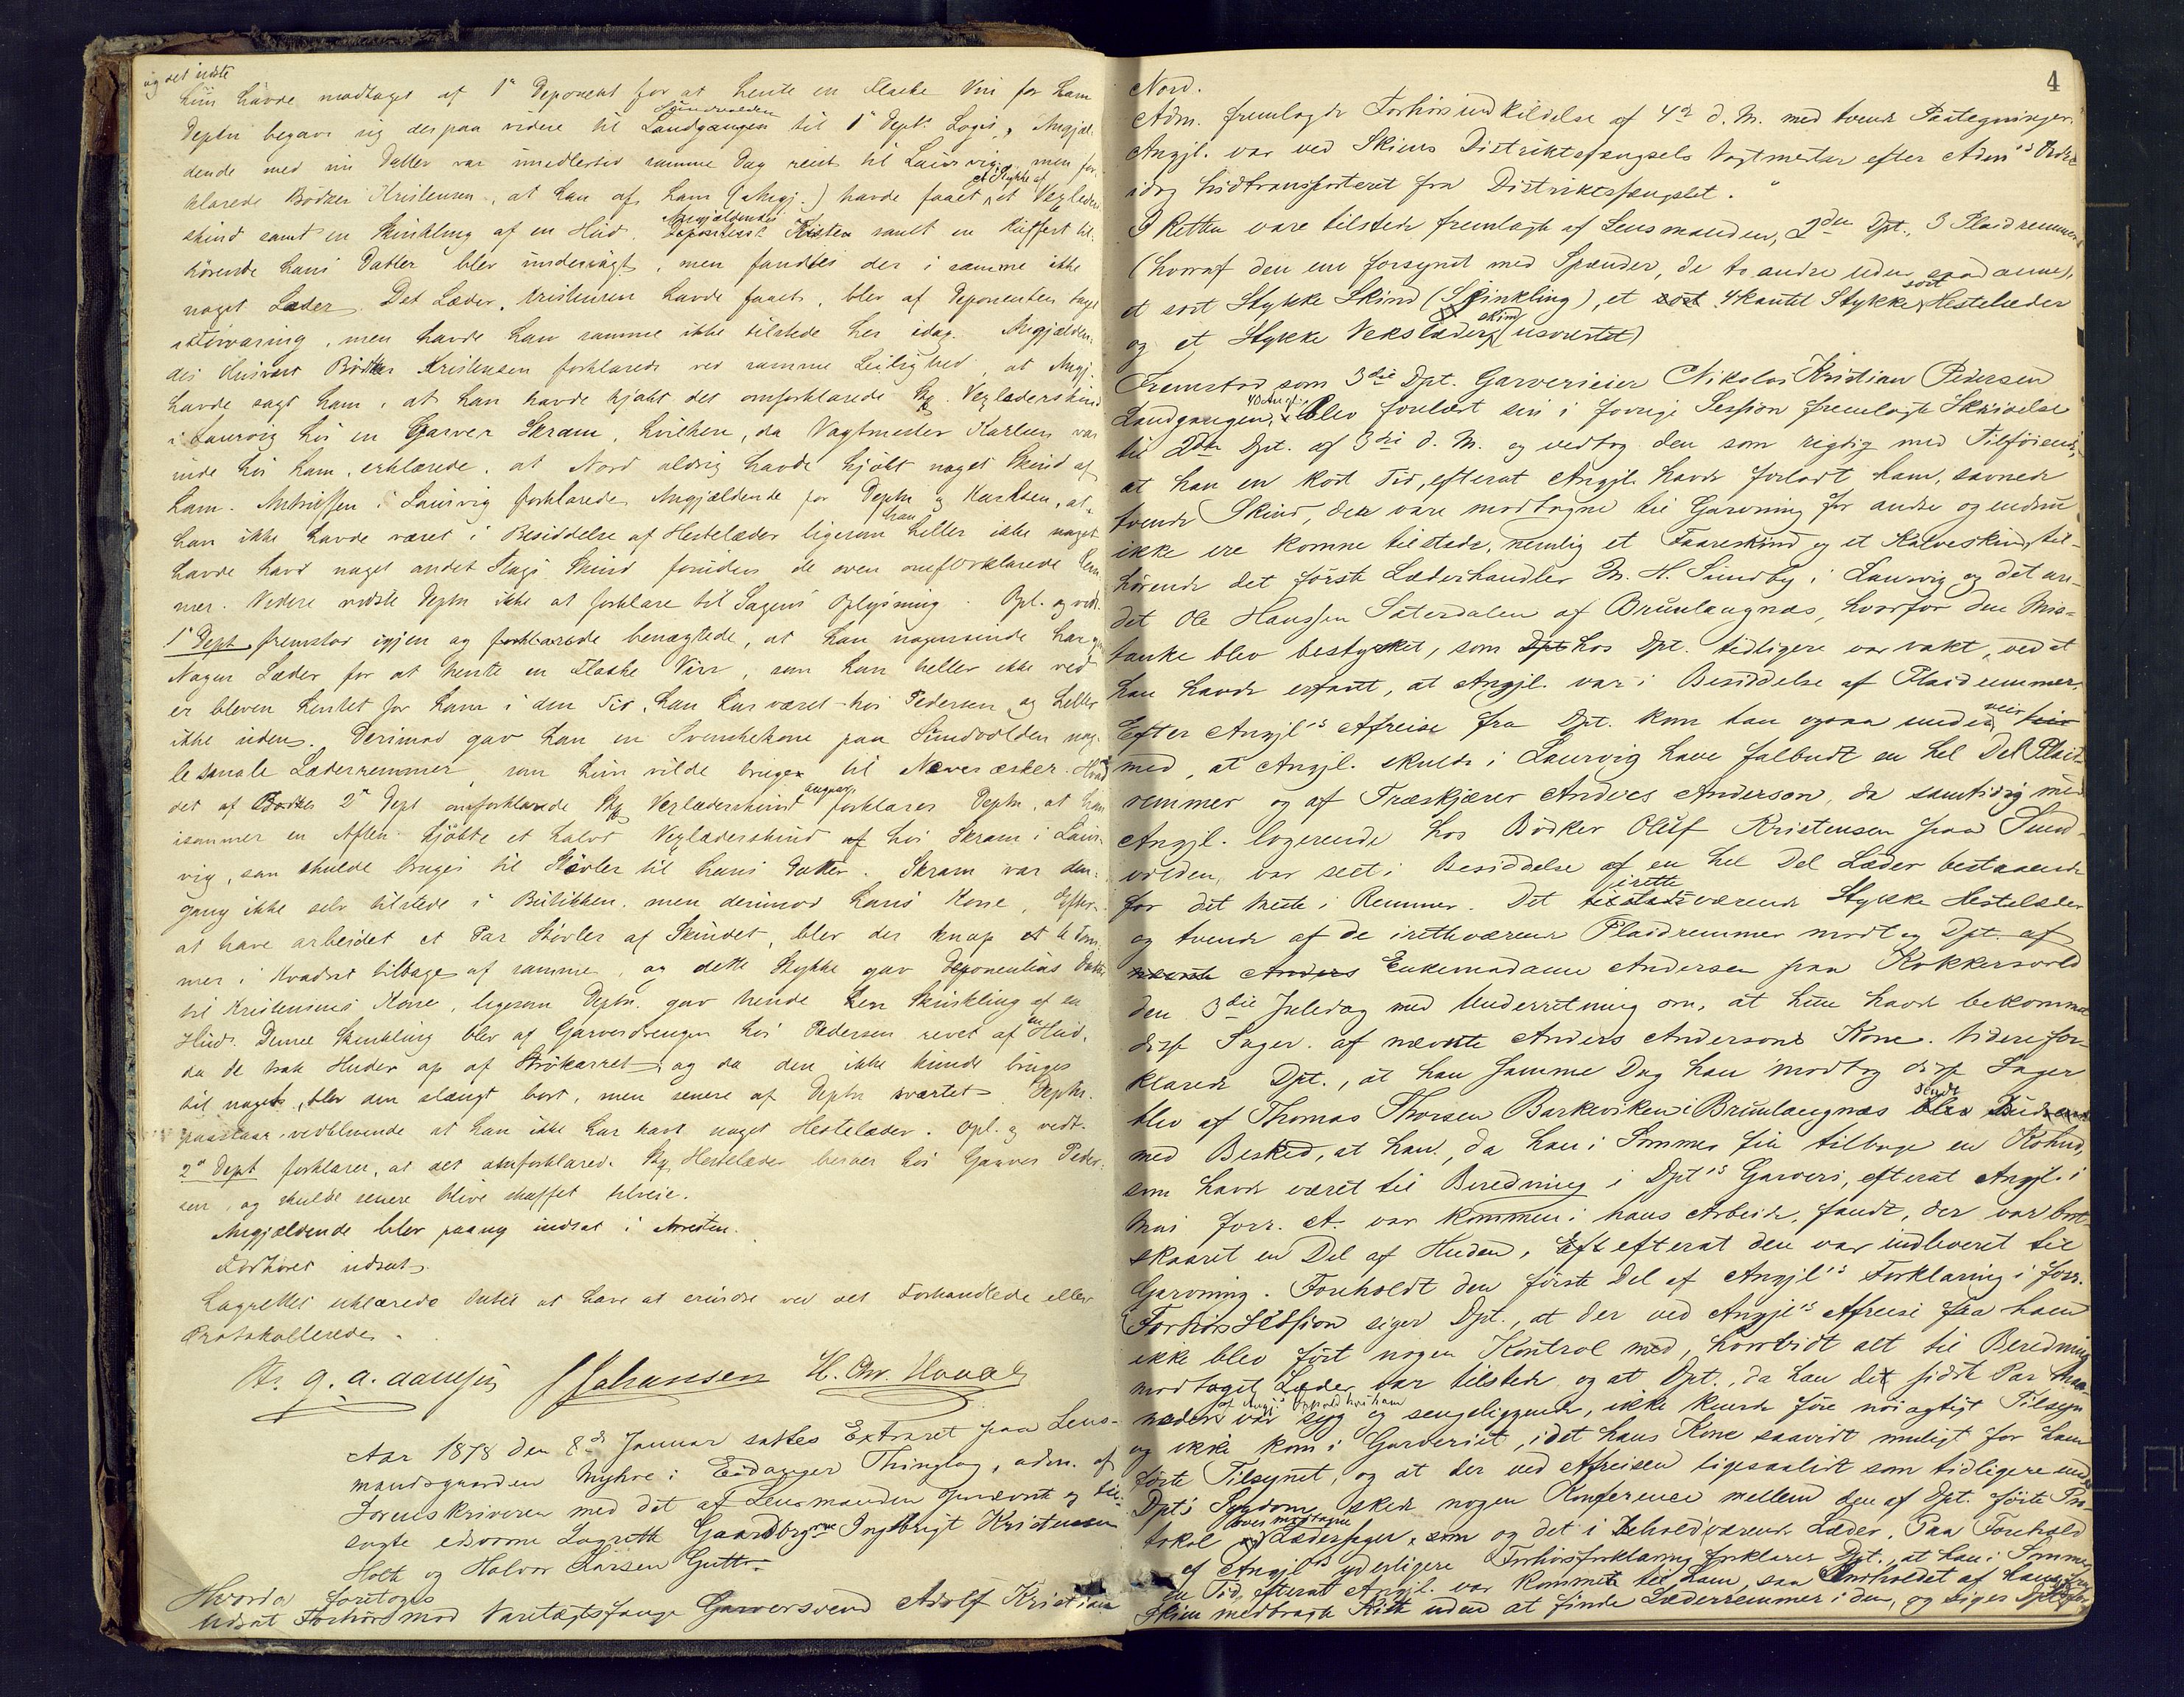 og det uste
hun havde modtaget af 1ste Deponent for at hente en Flaske Vin for ham
Deptn begav sig derpaa videre til Landgangen Sundvolden til 1ste Depts Logis, Angjæl-
dende med sin Datter var imidlertid samme Dag reist til Laurvig, men for-
klarede Bødker Kristensen, at han af ham (Angj.) havde faaet et Stykke af et Vexleder-
skind samt en Skinkling af en Hud. Angjældendes Kiste samt en Kuffert til-
hørende hans Datter blev undersøgt, men fandtes der i samme ikke
noget Læder. Det Læder, Kristensen havde faaet, blev af Deponenten taget
i Forvaring, men havde han samme ikke tilstede her idag. Angjælden-
des Husvert Bødker Kristensen forklarede ved samme Leilighed, at Angj.
havde sagt ham, at han havde kjøbt det omforklarede Stk. Vexlederskind
i Laurvig hos en Garver Skram, hvilken, da Vagtmester Karlsen var
inde hos ham, erklærede, at Nord aldrig havde kjøbt noget Skind af
ham. I Laurvig forklarede Angjældende for Deptn og Karlsen, at
han ikke havde været i Besiddelse af Hestelæder ligesom han heller ikke noget
havde havd noget andet Slags Skind foruden de oven omforklarede Rem-
mer. Videre vidste Deptn ikke at forklare til Sagens Oplysning. Opl. og vedt.
1ste Dept fremstod igjen og forklarede benægtede, at han nogensinde har givet
Nogen Læder for at hente en Flaske Vin, som han heller ikke ved
er bleven hentet for ham i den Tid, han har været hos Pedersen og heller
ikke siden. Derimod gav han en Svenskekone paa Sundvolden nog-
le smale Læderremmer som hun vilde bruge til Neveræsker. Hvad
det af Bødker 2den Dept omforklarede Stk Vexlederskind angaar forklarer Deptn, at han
isommer en Aften kjøbte et halvt Vexlederskind af hos Skram i Laur-
vig, som skulde bruges til Støvler til hans Datter. Skram var den-
gang ikke selv tilstede i Butikken, men derimod hans Kone. Efter
at have arbeidet et Par Støvler af Skindet, blev der knap et 6 Tom-
mer i Kvadrat tilbage af samme, og dette Stykke gav Deponentens Datter
til Kristensens Kone, ligesom Deptn. gav hende den Skinkling af en
Hud. Denne Skinkling blev af Garverdrengen hos Pedersen revet af en Hud,
da de trak Huder op af Strøkarret og da den ikke kunde bruges
til noget, blev den slængt bort, men senere af Deptn sværtet. Deptn.
paastaar vedblivende at han ikke har havt noget Hestelæder. Opl. og vedt.
2den Dept forklarer, at det omforklarede Stk. Hestelæder beroer hos Garver Peder-
sen, og skulde senere blive skaffet tilveie.
Angjældende blev paany indsat i Arresten.
Forhøret udsat.
Lagrettet erklærede Intet at have at erindre ved det Forhandlede eller
Protokollerede.
J. Johansen H. Chr.
Aar 1878 den 8de Januar sattes Extraret paa Lens-
mandsgaarden Myhre i Eidanger Thinglag, adm. af
Sorenskriveren med det af Lensmanden opnævnte og til-
sagte edsvorne Lagrette Gaardbrgrne Ingebrigt Kristensen
Holte og Halvor Larsen Gutto.
Hvorda foretoges
Udsat Forhør mod Varetægtsfange Garversvend Adolf Kristian
4
Nord.
Adm. fremlagde Forhørsudskildelse af 4de d. M. med tvende Paategninger.
Angjl. var ved Skiens Distriktsfængsels Vagtmester efter Adm's Ordre
idag hidtransporteret fra Distriktsfængslet.
I Retten vare tilstede fremlagt af Lensmanden, 2den Dpt., 3 Plaidremmer
(hvoraf den ene forsynet med Spænder, de to andre uden saadanne),
et sort Stykke Skind (Skinkling), et sort 4kantet Stykke sort Hestelæder
og et Stykke Vekslæderskind (usværtet)
Fremstod som 3die Dpt. Garverieier Nikolai Kristian Pedersen
Landgangen, 40 Aar gl., Blev forelæst sin i forrige Session fremlagte Skrivelse
til 2den Dpt. af 3die d. M. og vedtog den som rigtig med Tilføiende,
at han en kort Tid, efterat Angjl. havde forladt ham, savnede
tvende Skind, der vare modtagne til Garvning for andre og endnu
ikke ere komne tilstede, nemlig et Faareskind og et Kalveskind, til-
hørende det første Læderhandler M. H. Sundby i Laurvig og det an-
det Ole Hanssen Saterdalen af Brunlangnæs, hvorfor den Mis-
tanke blev bestyrket, som Dpt hos Dpt. tidligere var vakt, ved at
han havde erfaret, at Angjl. var i Besiddelse af Plaidremmer.
Efter Angjl's Afreise fra Dpt. kom han ogsaa underveir
med, at Angjl. skulde i Laurvig have falbudt en hel Del Plaid-
remmer og af Træskjærer Anders Anderson, da samtidig med
Angjl. logerende hos Bødker Oluf Kristensen paa Sund-
volden, var seet i Besiddelse af en hel Del Læder bestaaende
for det meste i Remmer. Det tilstede iretteværende Stykke Hestelæder
og tvende af de iretteværende Plaidremmer modtog Dpt. af
nævnte Anders Enkemadame Andersen paa Kokkersvold
den 3die Juledag med Underretning om, at hun havde bekommet
disse Sager af nævnte Anders Andersons Kone. Videre for-
klarede Dpt., at han samme Dag han modtog disse Sager
blev af Thomas Thorsen Barkeviken i Brunlangnæs blev sendt Bud
med Besked, at han, da han i Sommer fik tilbage en Kohud,
som havde været til Beredning i Dpt's Garveri, efterat Angjl. i
Mai forr. A. var kommen i hans Arbeide, fandt, der var bort-
skaaret en Del af Huden, Eft efterat den var indleveret til
Garvning. Foreholdt den første Del af Angjl's Forklaring i forr.
Forhørssession siger Dpt., at der ved Angjl's Afreise fra ham
ikke blev ført nogen Kontrol med, hvorvidt alt til Beredning
modtaget Læder var tilstede og at Dpt., da han det sidste Par Maa-
neder af Angj.'s Ophold hos ham var syg og sengeliggende, ikke kunde føre nøiagtigt Tilsyn
og ikke kom i Garveriet, idet hans Kone saavidt muligt for ham
førte Tilsynet, og at der ved Afreisen ligesaalidt som tidligere under
Dpt's Sygdom skede nogen Konference mellem den af Dpt. førte Pro-
tokol over modtagne Lædersager, som og det i Behold værende Læder. Paa Forehold
af Angjl's yderligere Forhørsforklaring forklarer Dpt., at han i Sommer
en Tid, efterat Angjl. var kommet til ham, saa Indholdet af hans fra
Skien medbragte Kiste uden at finde Læderremmer i den, og siger Dpt.